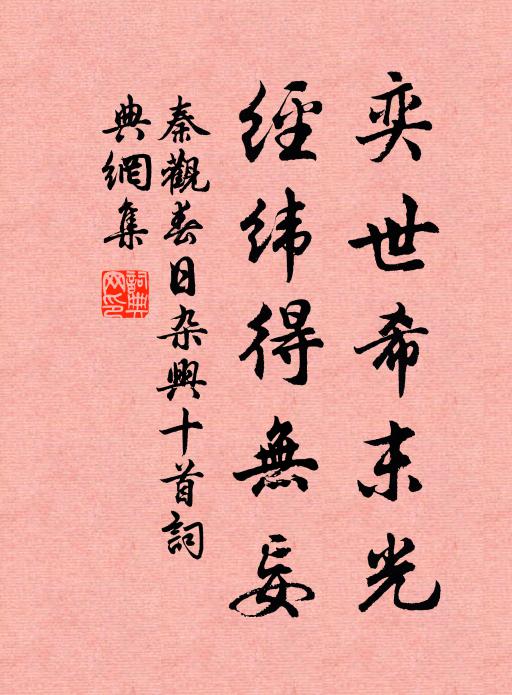 奕世希末光
經緯得無妄
秦觀春日杂興十首詞
典網集
詞典
网印